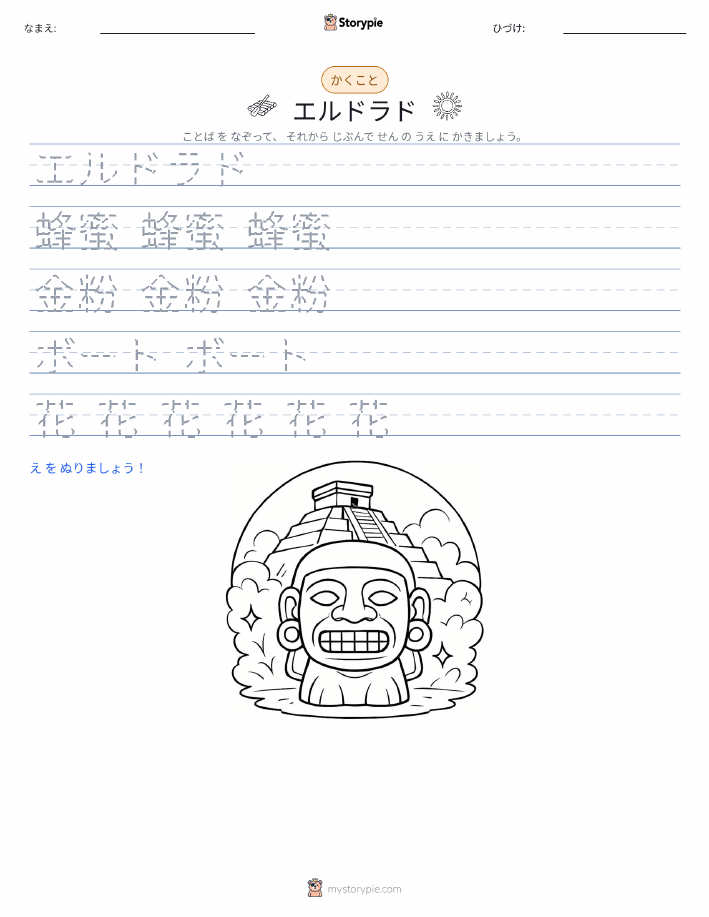 なまえ:
Storypie
ひづけ:
かくこと
エルドラド
ことば を なぞって、 それから じぶんで せん の うえ に かきましょう。
エルドラド
蜂蜜 蜂蜜 蜂蜜
金粉 金粉 金粉
ボート ボート
花 花 花 花 花 花
え を ぬりましょう！
mystorypie.com